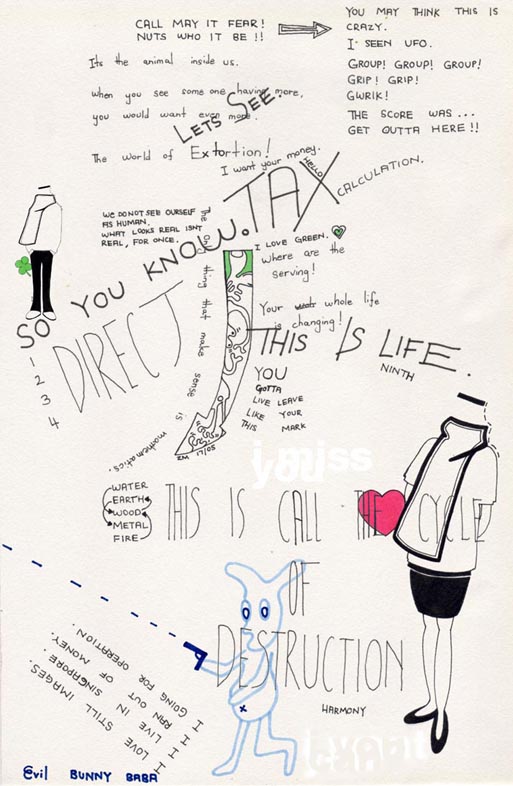 CALL MAY IT FEAR!
NUTS WHO IT BE !!
YOU MAY THINK THIS IS
CRAZY.
I SEEN UFO.
GROUP! GROUP! GROUP!
GRIP! GRIP!
GWRIK!
THE SCORE WAS ...
GET OUTTA HERE !!
Its the animal inside us.
when you see some one having more,
you would want even more.
LETS SEE.
The world of Extortion!
I want your money.
HELLO
TAX
CALCULATION.
WE DO NOT SEE OURSELF
AS HUMAN.
WHAT LOOKS REAL ISNT
REAL, FOR ONCE.
The only thing that make sense is mathematics.
SO YOU KNOW.
I LOVE GREEN.
where are the
serving!
Your whole life
is changing!
DIRECT
1
2
3
4
THIS IS LIFE.
NINTH
YOU
GOTTA
LIVE LEAVE
LIKE YOUR
THIS MARK
ZM 17/05
i miss
you
WATER
EARTH
WOOD
METAL
FIRE
THIS IS CALL THE CYCLE
OF
DESTRUCTION
HARMONY
I LOVE STILL IMAGES.
I LIVE IN SINGAPORE.
I RAN OUT OF MONEY.
I GOING FOR OPERATION.
Evil BUNNY BABA